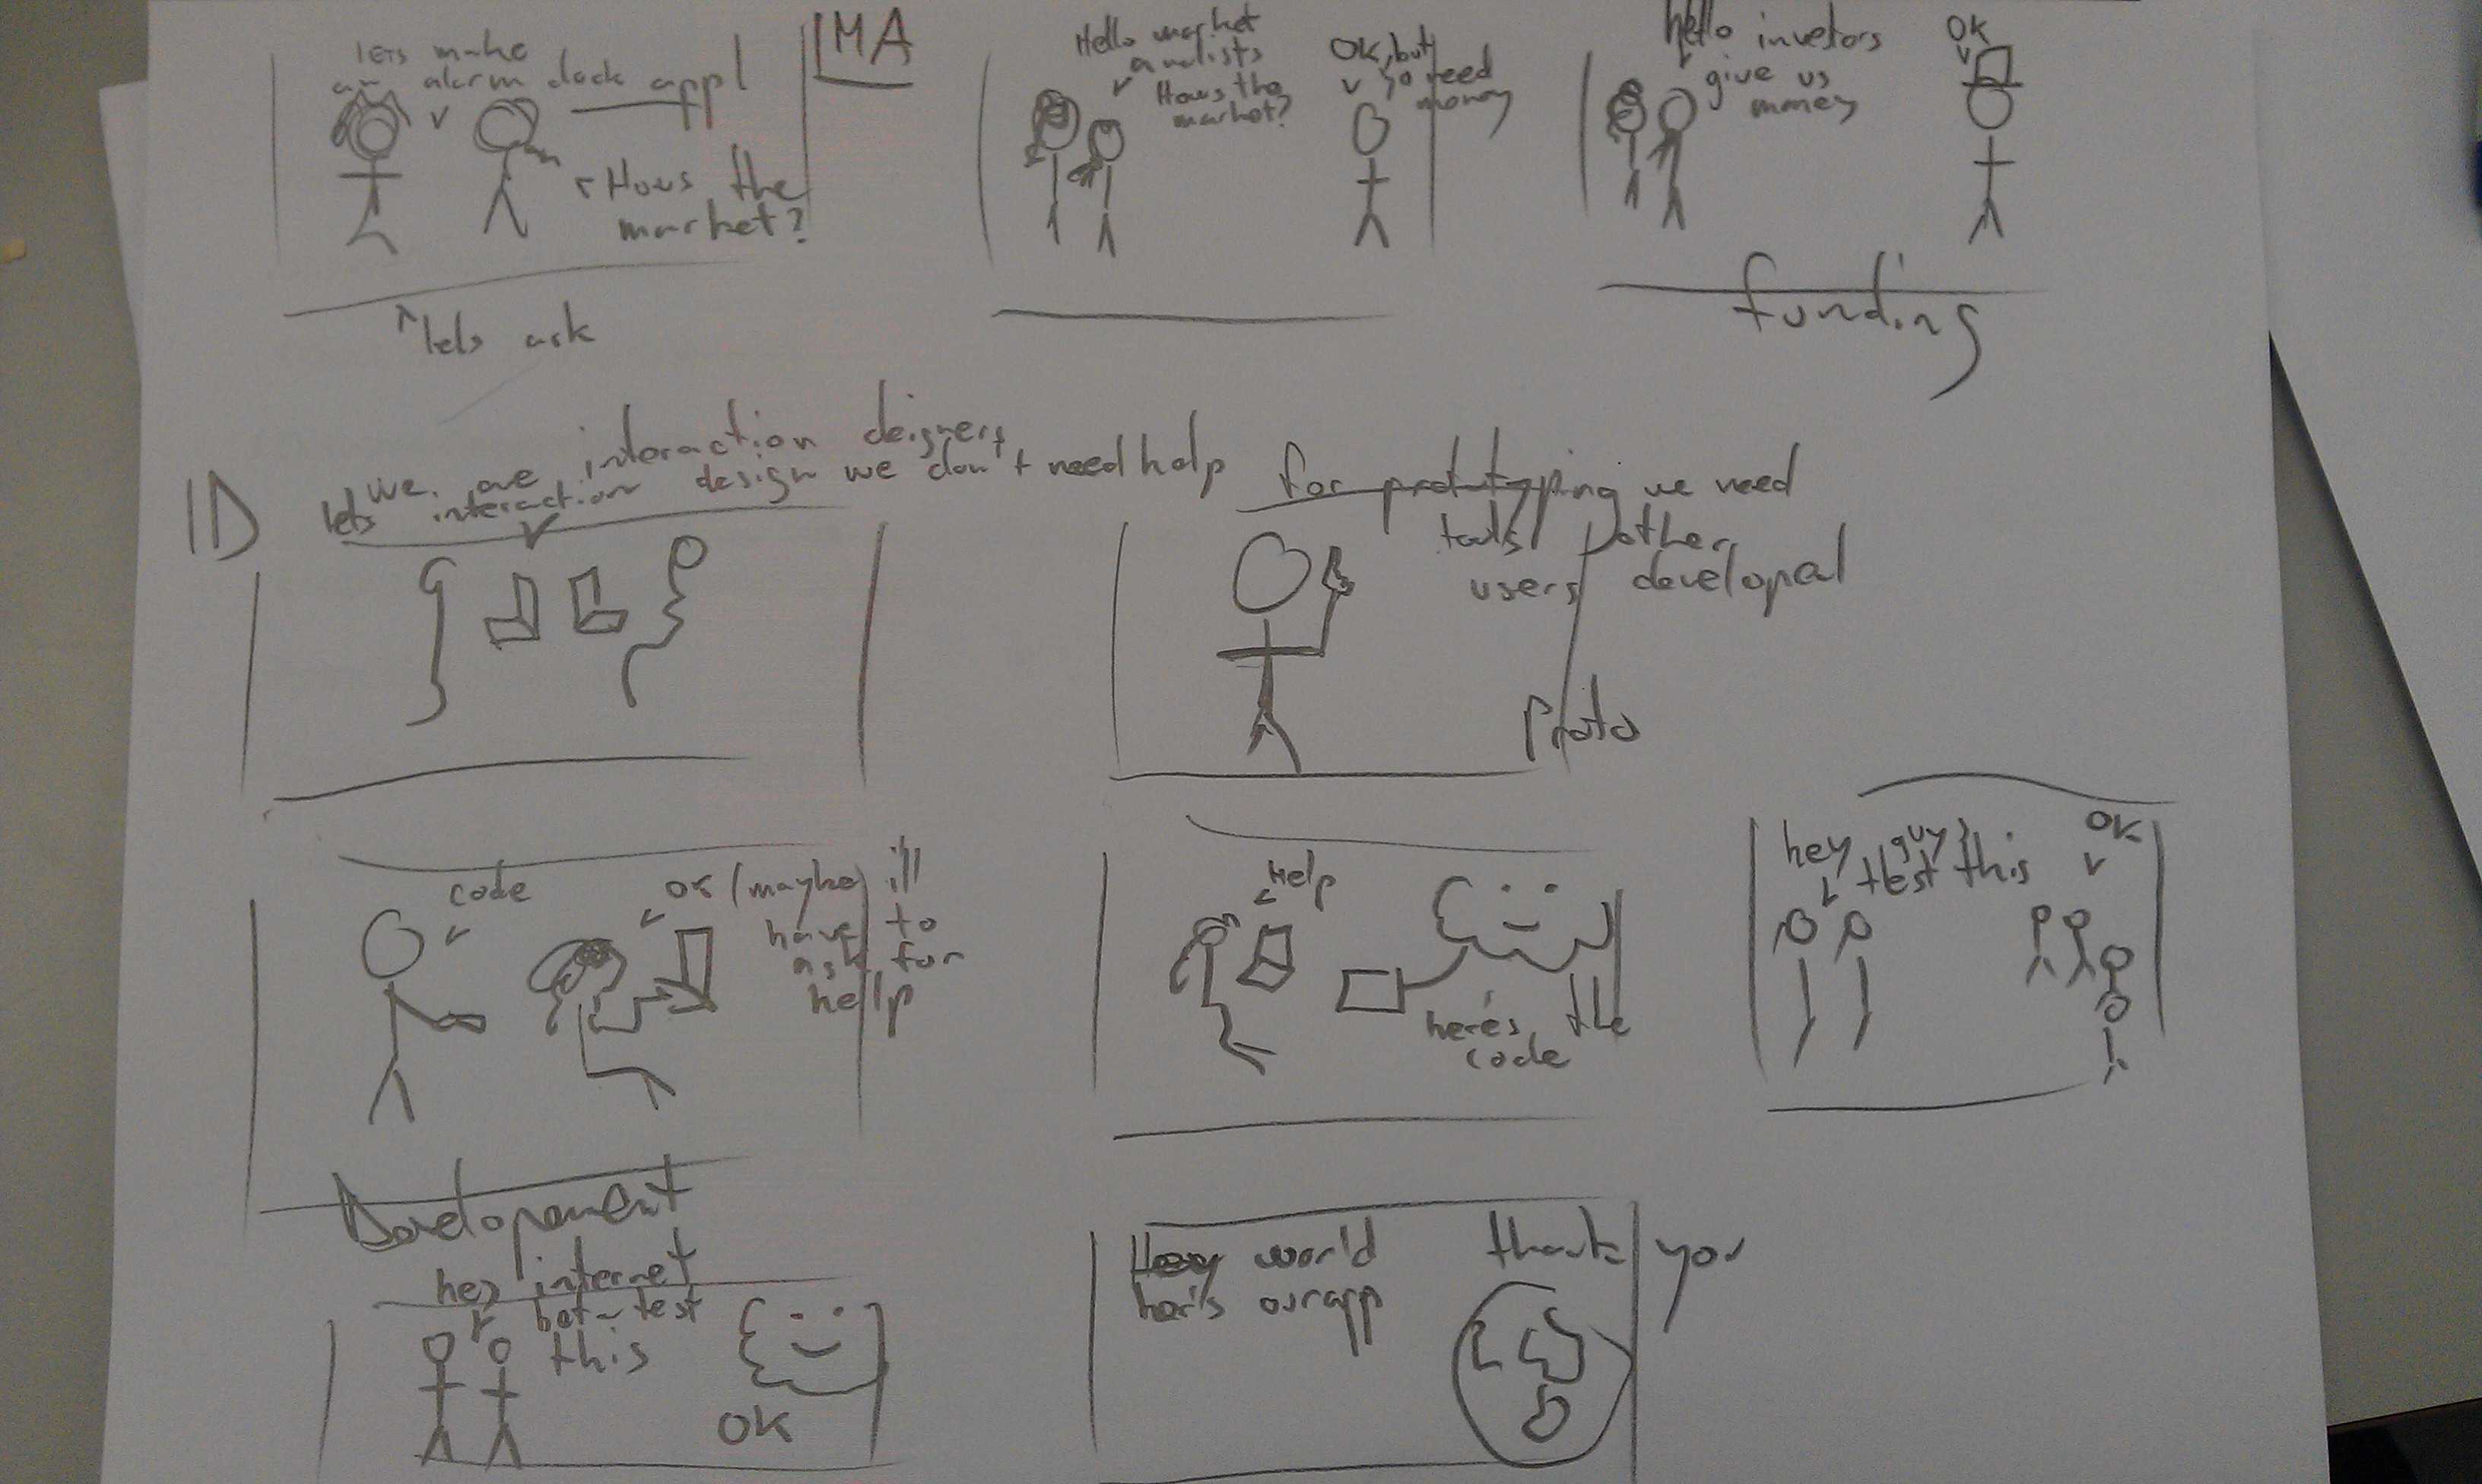 lets make
an alarm clock app!
Hows the
market?
lets ask
MA
Hello market
analists
Hows the
market?
OK, but
yo need
money
hello investors
give us
money
OK
funding
ID
We are interaction deigners
lets interaction design we don't need help
for prototyping we need
tools other
users developed
Proto
code
OK (maybe) i'll
have to
ask for
help
Development
Help
here's the
code
hey guys
test this
OK
hey internet
bet-test
this
OK
Hey world
her's our app
thank you